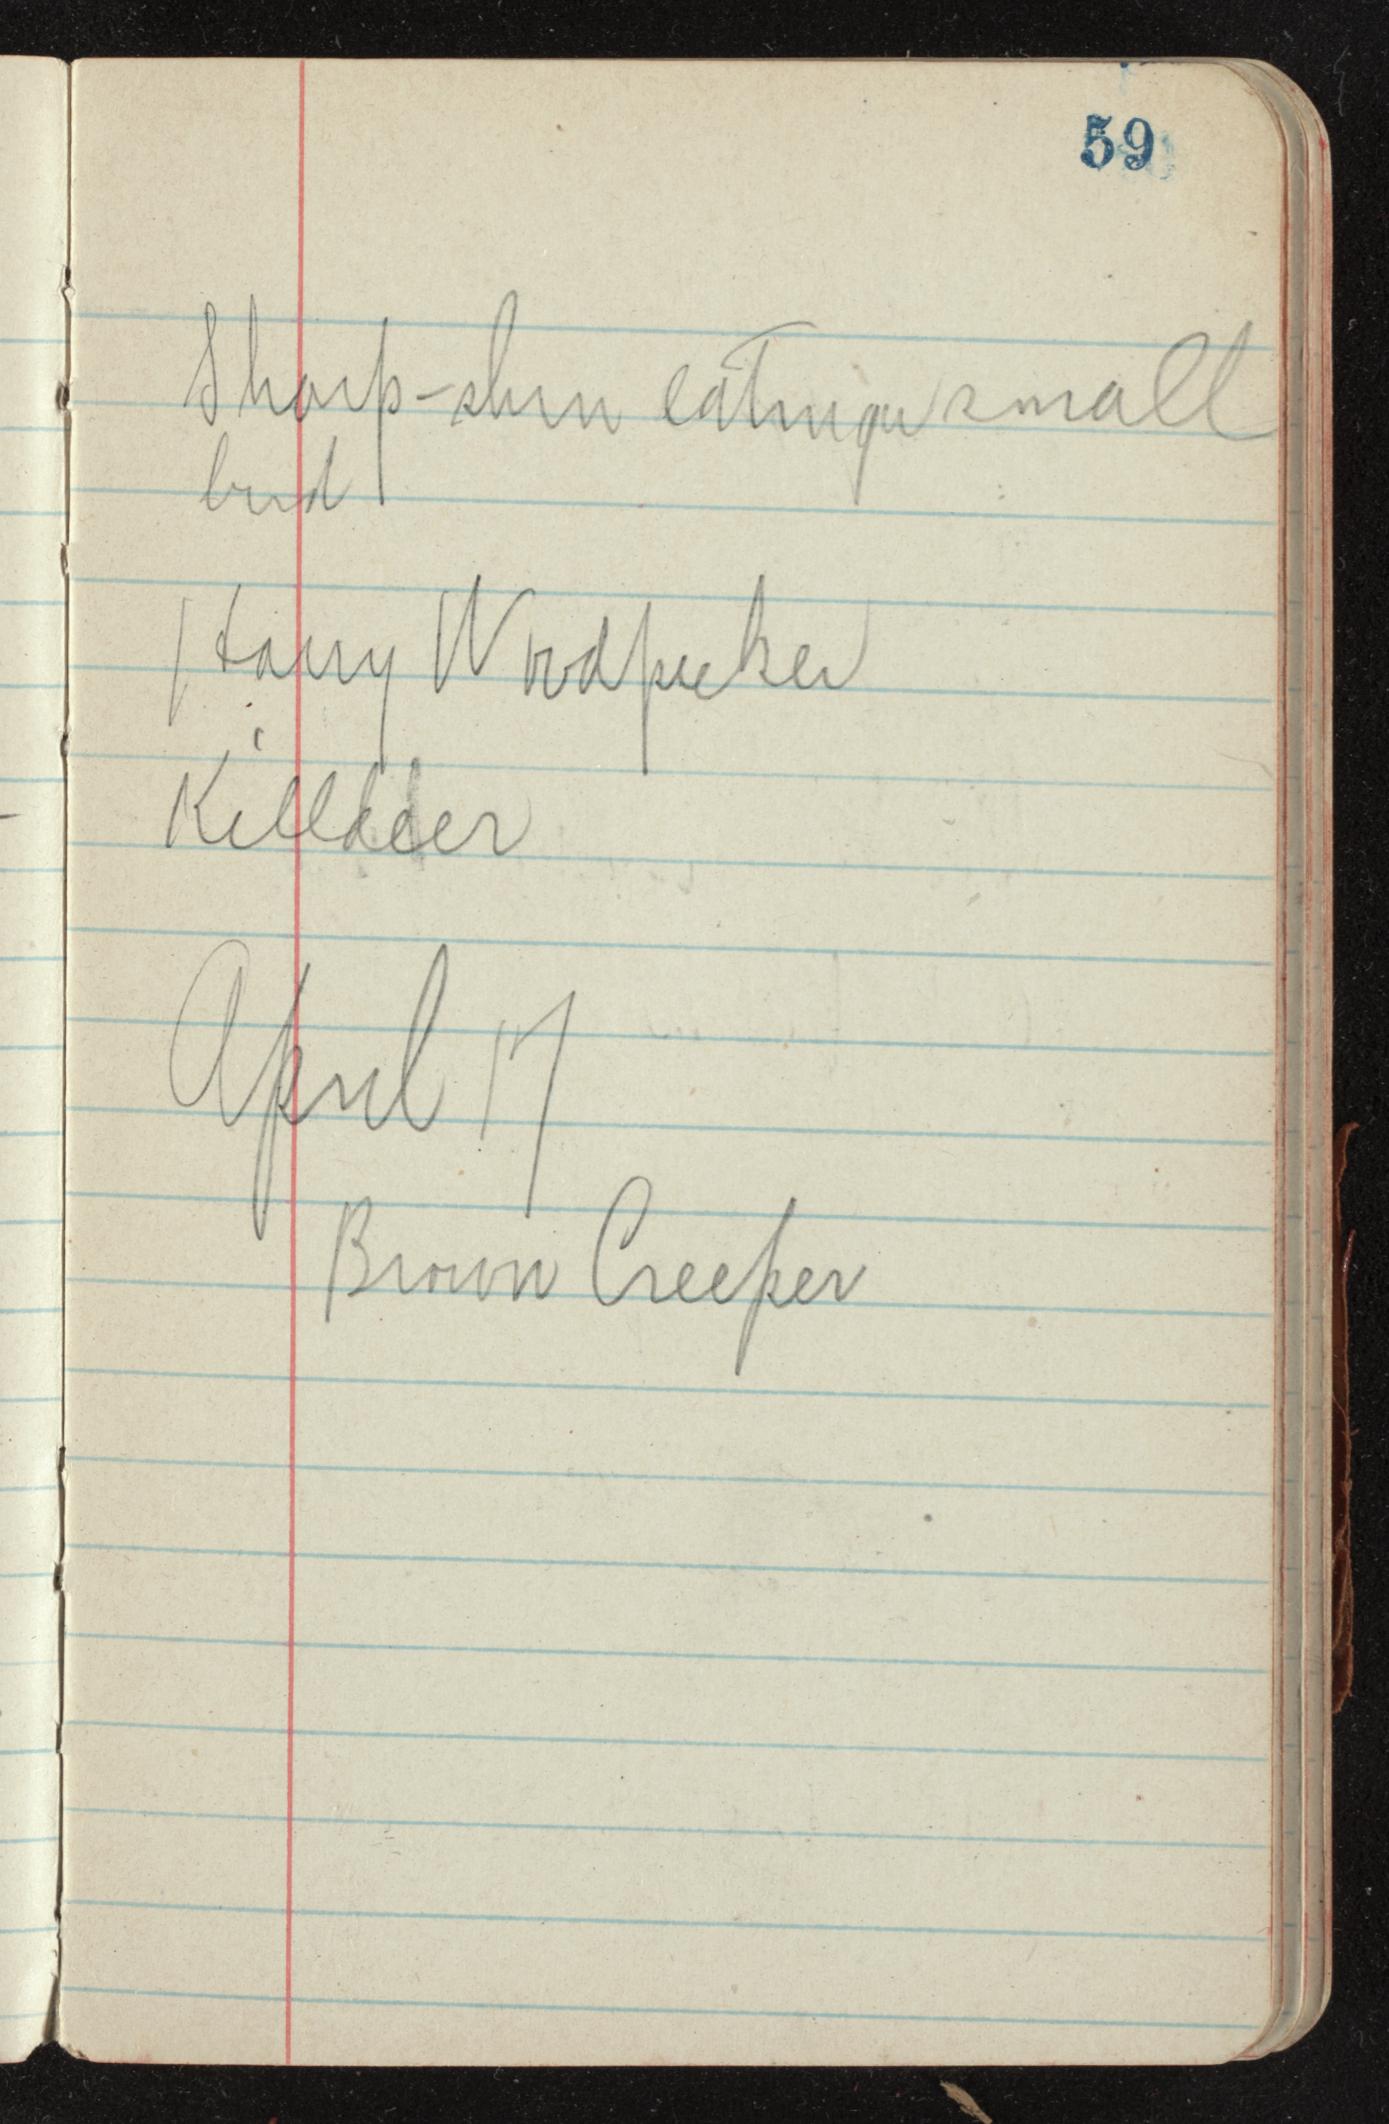 59
Sharp-shin eating small
bird
Hairy Woodpecker
Killdeer
April 17
Brown Creeper